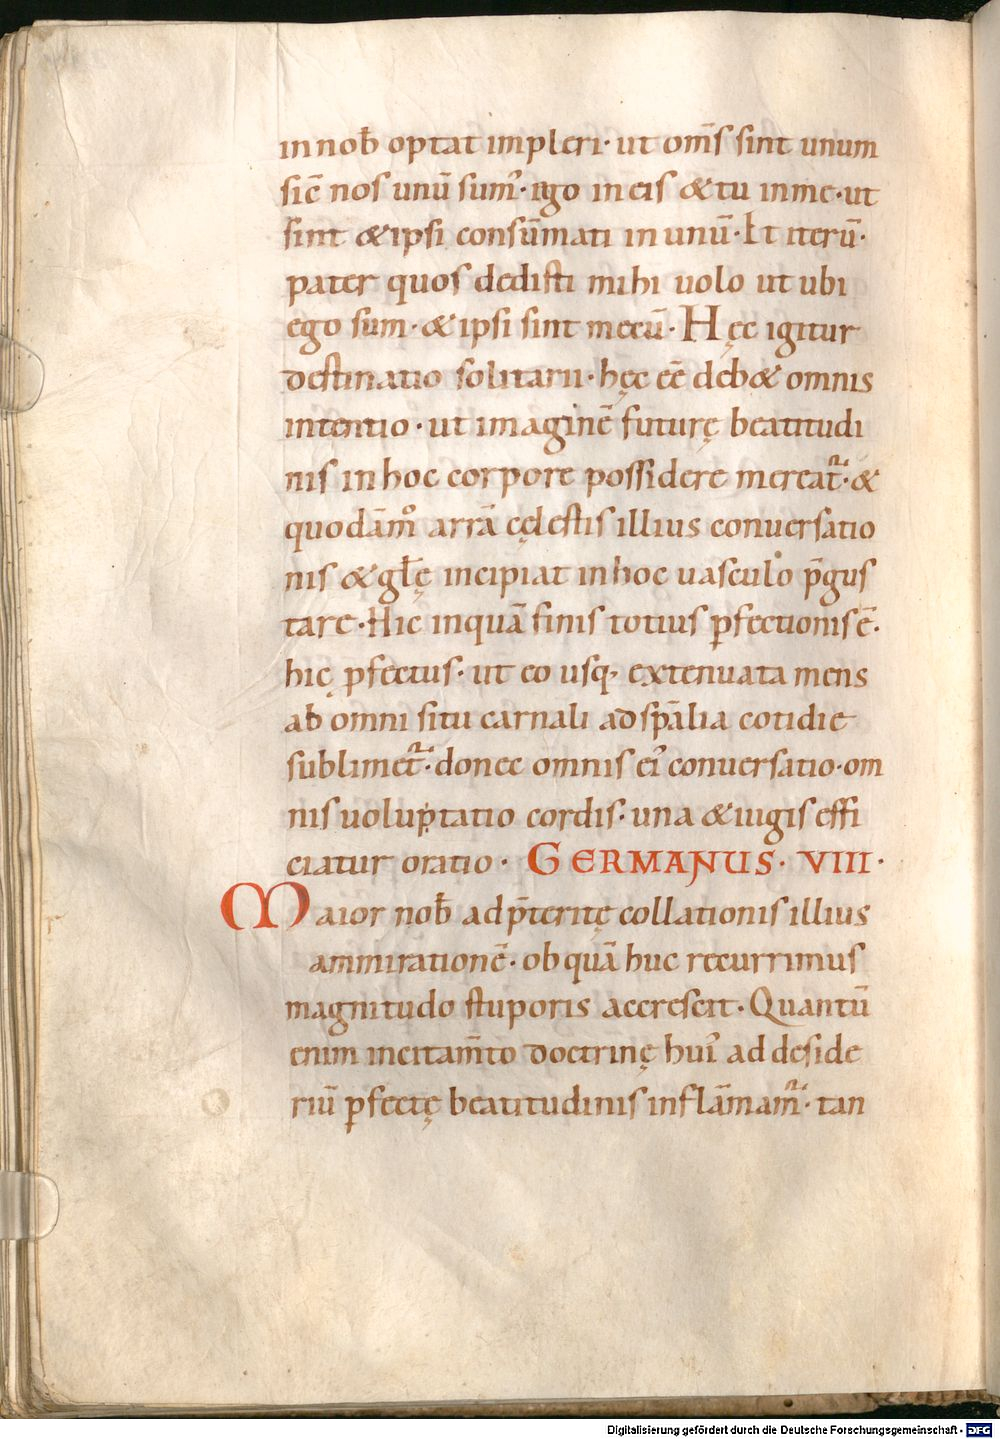 in nob̄ optat impleri· ut om̄s sint unum
sic̄ nos unū sum᷒· ego in eis & tu in me· ut
sint & ipsi consūmati in unū· Et iterū·
pater quos dedisti mihi uolo ut ubi
ego sum· & ipsi sint mecū· Hęc igitur
destinatio solitarii· hęc eē deb& omnis
intentio· ut imaginē futurę beatitudi
nis in hoc corpore possidere mereat᷑· &
quodām̊ arrā cęlestis illius conuersatio
nis & gl̄ę incipiat in hoc uasculo p̄gus
tare· Hic inquā finis totius ꝑfectionis ē·
hic ꝑfectus· ut eo usq· extenuata mens
ab omni situ carnali ad sp̄alia cotidie
sublimet᷑· donec omnis ei᷒ conuersatio· om
nis uoluptatio cordis· una & iugis effi
ciatur oratio· GERMANUS· VIII·
Maior nob̄ ad p̄teritę collationis illius
ammirationē· ob quā huc recurrimus
magnitudo stuporis accrescit· Quantū
enim incitam̄to doctrinę hui᷒ ad deside
riū ꝑfectę beatitudinis inflāmam᷑· tan
Digitalisierung gefördert durch die Deutsche Forschungsgemeinschaft - DFG